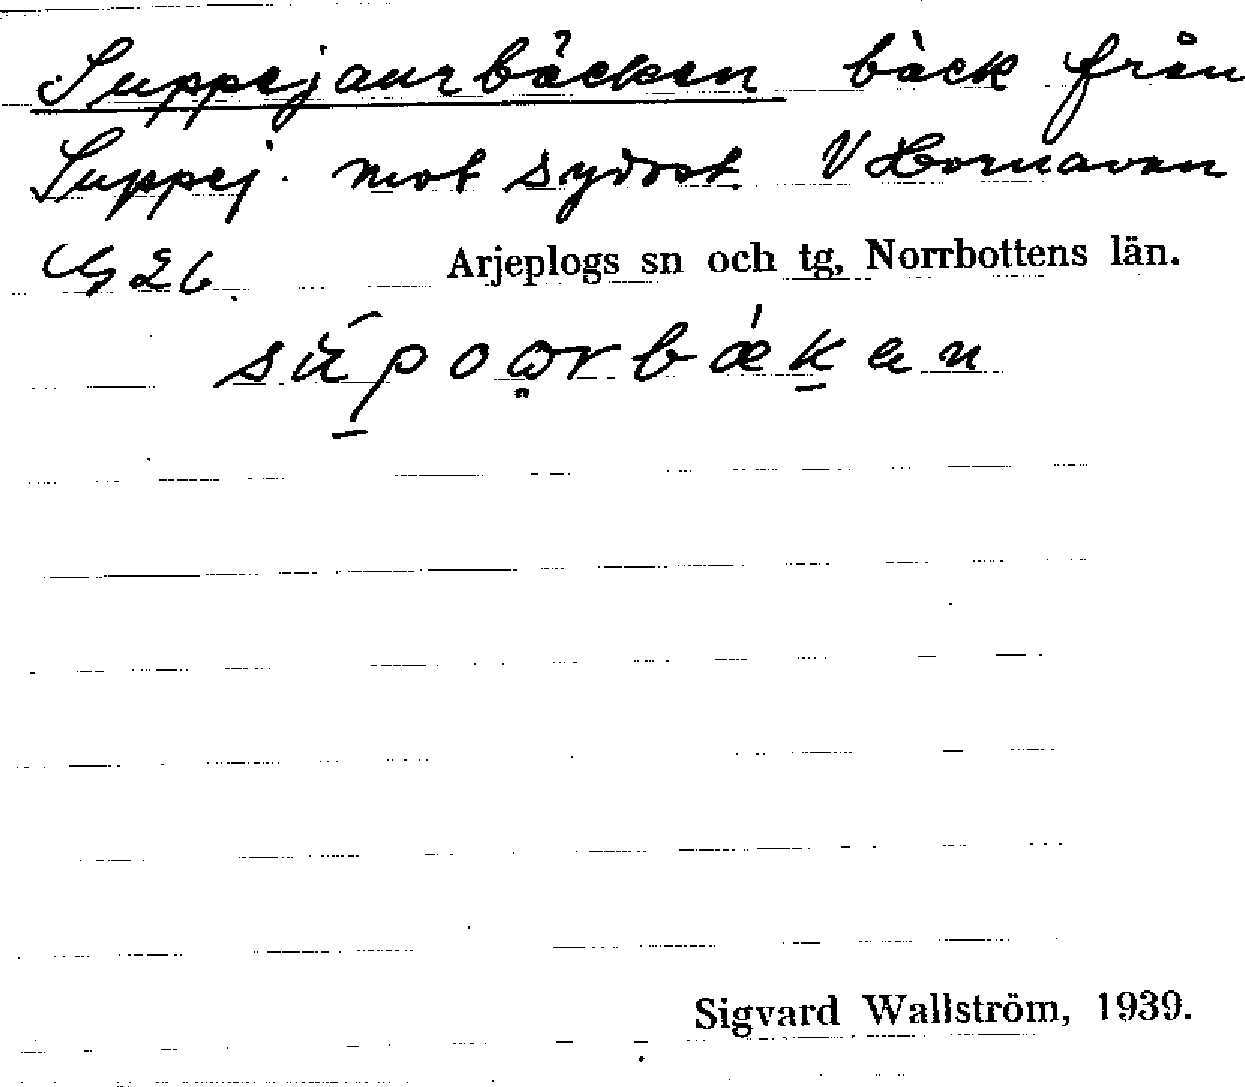 Suppejaurbäcken bäck från
Suppej. mot sydost V Hornavan
G 26. Arjeplogs sn och tg, Norrbottens län.
Sigvard Wallström, 1939.